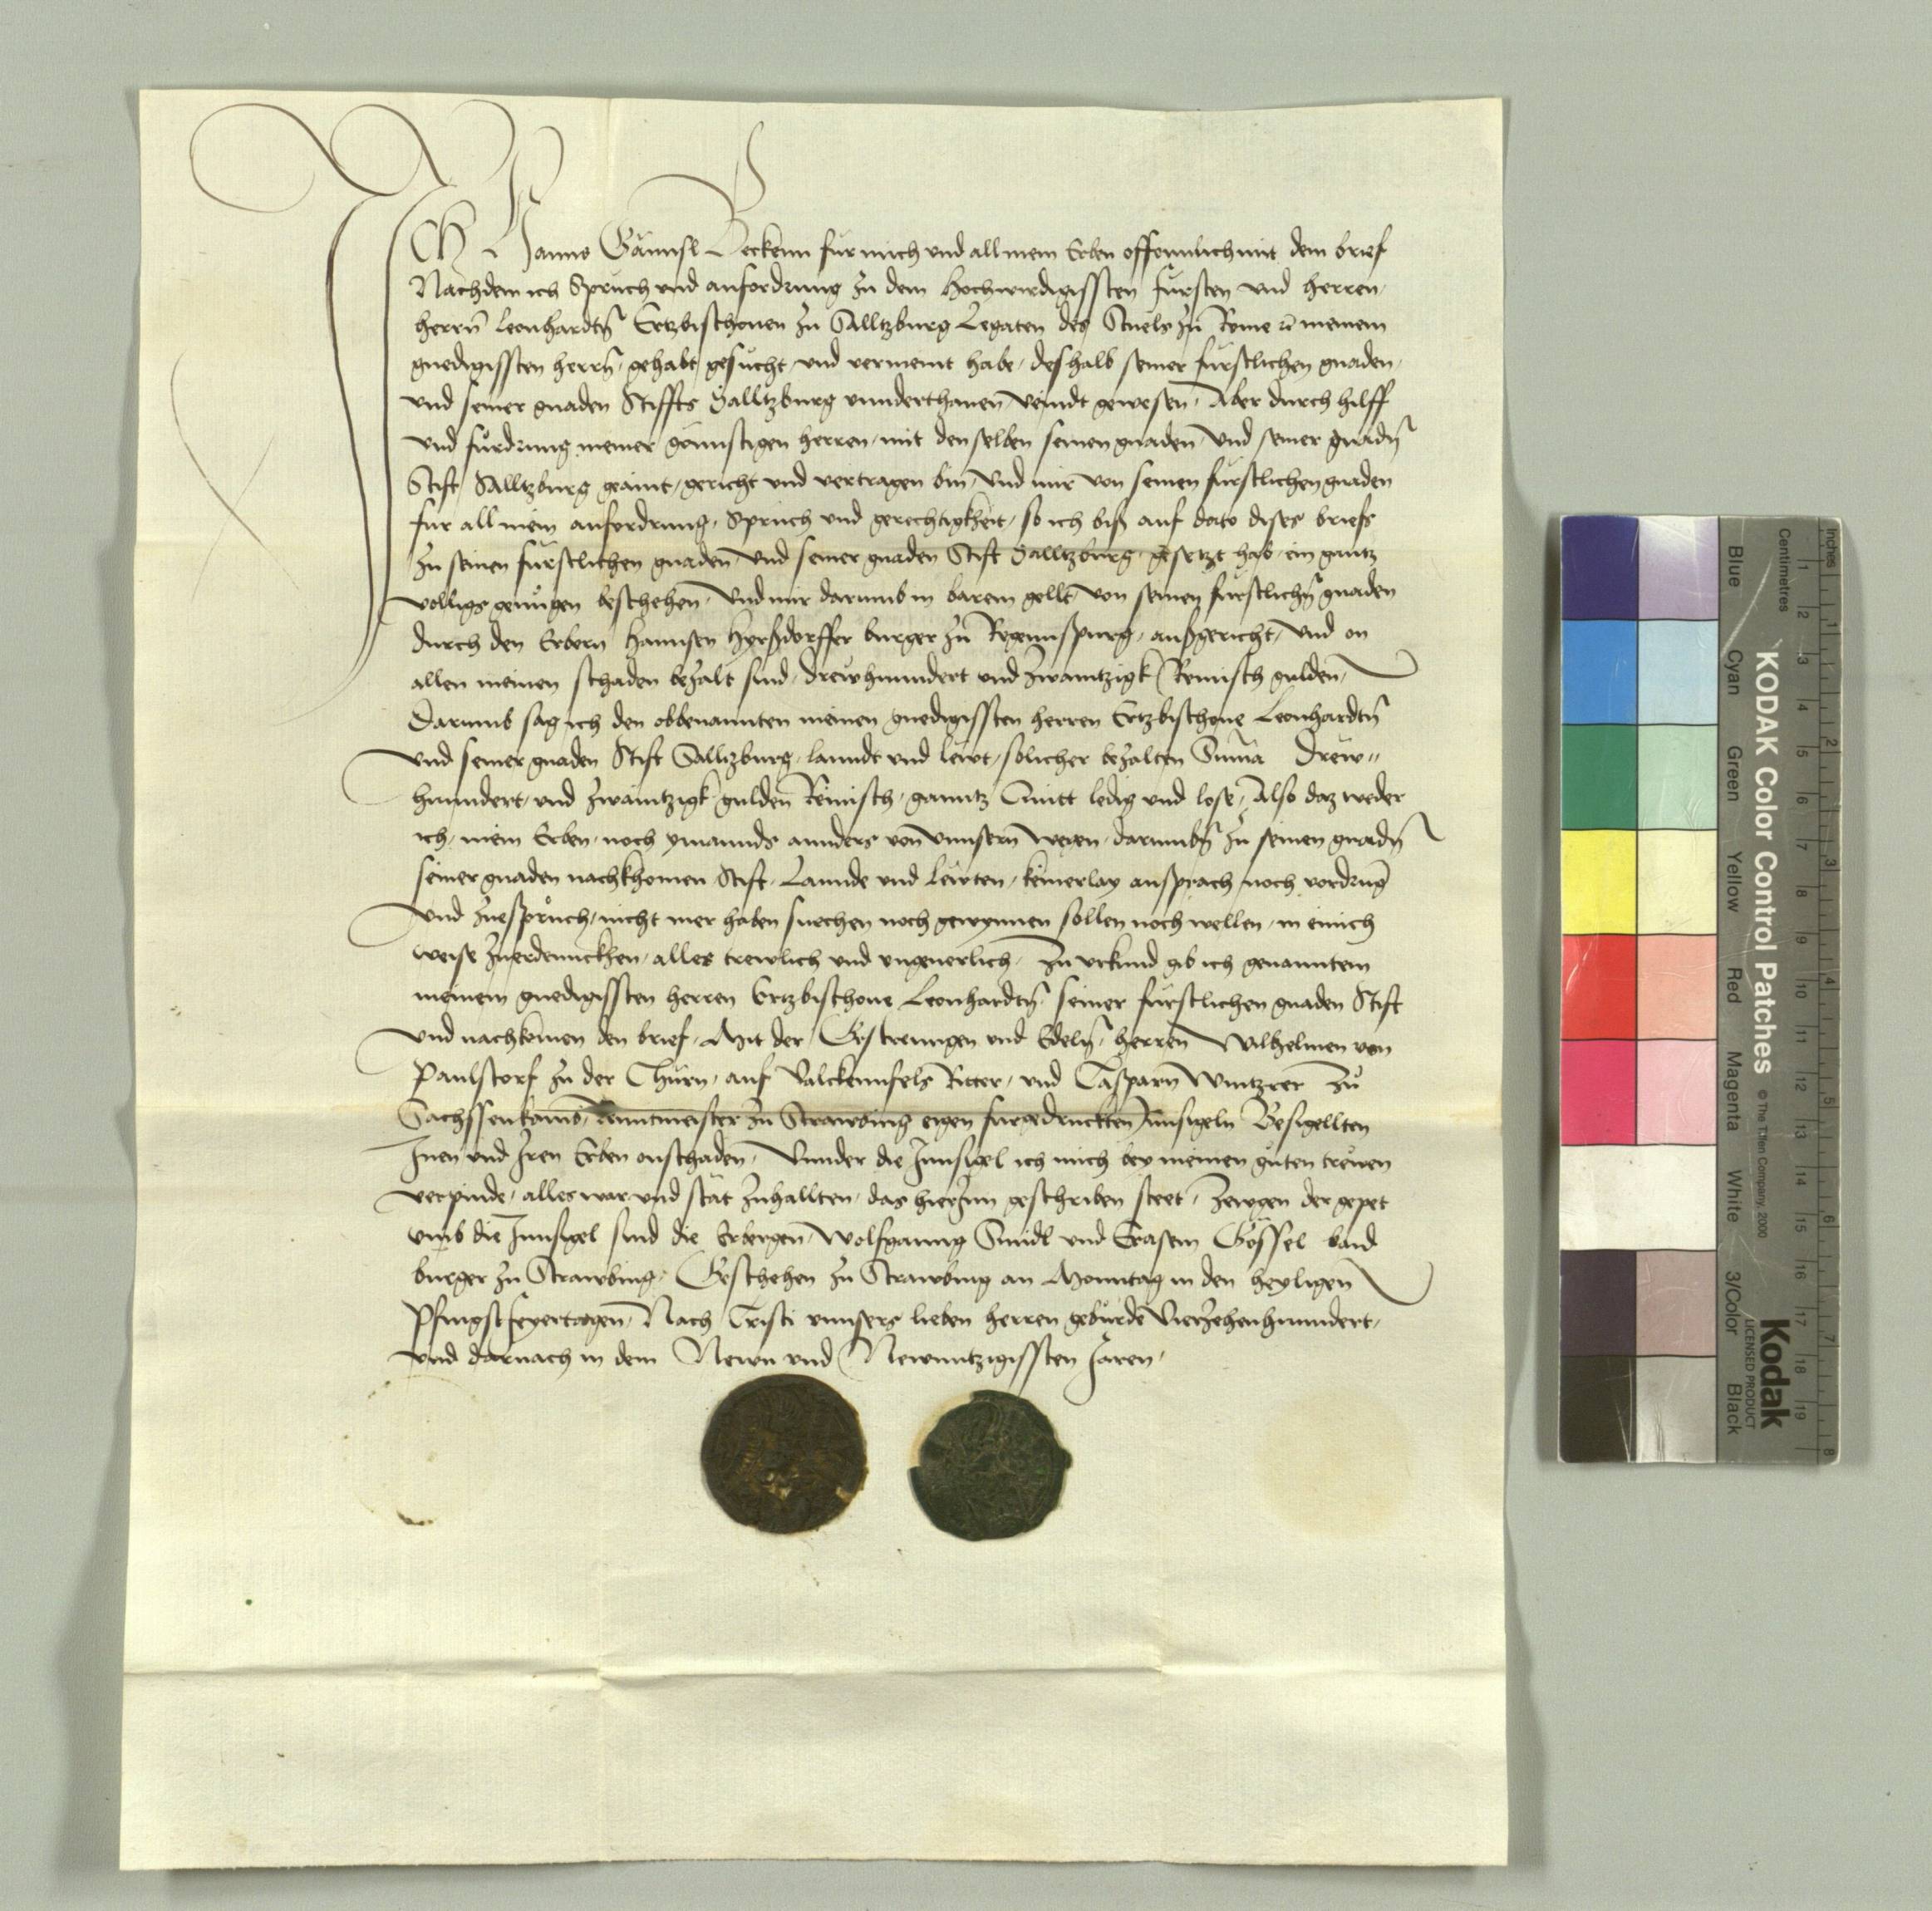 ICh Hanns Gännsl Beckenn fur mich und all mein Erben offennlich mit dem brief
Nachdem ich Spruch und anfordrung zu dem Hochwirdigissten fürsten und herren,
herrn Leonhardtn Ertzbischouen zu Salltzburg Legaten des Stuels zu Rome rc meinem
gnedigissten herrn, gehabt gesucht und vermeint habe, deshalb seiner fürstlichen gnaden,
und seiner gnaden Stiffts Salltzburg unnderthanen veindt gewesen, Aber durch hilff
und fürdrung meiner günnstigen herren, mit denselben seinen gnaden, und seiner gnadn
Stift Salltzburg geaint, gericht und vertragen bin, Und mir von seinen furstlichen gnaden
fur all mein anfordrung, Spruch und gerechtigkheit, so ich biß auf dato dises briefs
zu seinen fürstlichen gnaden, und seiner gnaden Stift Salltzburg, gesetzt hab, ein gantz
volligs genügen beschehen, Und mir darumb in barem gellt von seinen fürstlichn gnaden
durch den Erbern Hannsen Hyrßdorffer burger zu Regennspurg, außgericht, Und on
allen meinen schaden bezalt sind, drewhunndert und zwaintzigk Reinisch gulden,
Darumb sag ich den obbenannten meinen gnedigissten herren Ertzbischoue Leonhardtn
Und seiner gnaden Stift Salltzburg, lanndt und lewt, solicher bezalten Suma Drew„
hunndert, und zwaintzigk gulden Reinisch, ganntz Quitt ledig und lose, Also daz weder
ich, mein Erben, noch ymannds annders von unnsern wegen, darumbn zu seinen gnadn
seiner gnaden nachkhomen Stift, Lannde und Lewten, keinerlay ansprach noch vordrung
Und zuespruch, nicht mer haben suechen noch gewynnen sollen noch wellen, in einich
weise zuerdennckhen, alles trewlich und ungeuerlich, Zu urkund gib ich genanntem
meinem gnedigissten herren Ertzbischoue Leonhardtn, seiner fürstlichen gnaden Stift
Und nachkomen den brief, Mit der Gestrenngen und Edeln, herren Wilhelmen von
Paulstorf zu der Thürn, auf Valckennfels Ritter, und Casparn Wintzrer zu
Sachssenkamb, Renntmaister zu Strawbing eigen furgedruckten Innsigeln Besigellten
Inen und Iren Erben onschaden, Unnder die Innsigel ich mich bey meinen guten trewen
verpinde, alles war und stät zuhallten, das hierInn geschriben steet, Zewgen der gepet
umb die Innsigel sind die Erbergen Wolfganng Sundl und Erasem Gössel baid
burger zu Strawbing, Geschehen zu Strawbing an Monntag in den heyligen
Pfingstfeyertagen, Nach Cristi unnsers lieben herren gebürde Vierzehenhunndert,
und darnach in dem Newn und Newnntzigissten Jaren,
KODAK Color Control Patches © The Tiffen Company, 2000
Kodak
LICENSED PRODUCT
Blue Cyan Green Yellow Red Magenta White 3/Color Black
Centimetres
1 2 3 4 5 6 7 8 9 10 11 12 13 14 15 16 17 18 19
Inches
1 2 3 4 5 6 7 8